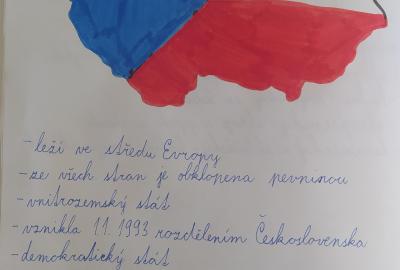 -leží ve středu Evropy
-ze všech stran je obklopena pevninou
-vnitrozemský stát
-vznikla 1.1.1993 rozdělením Československa
-demokratický stát